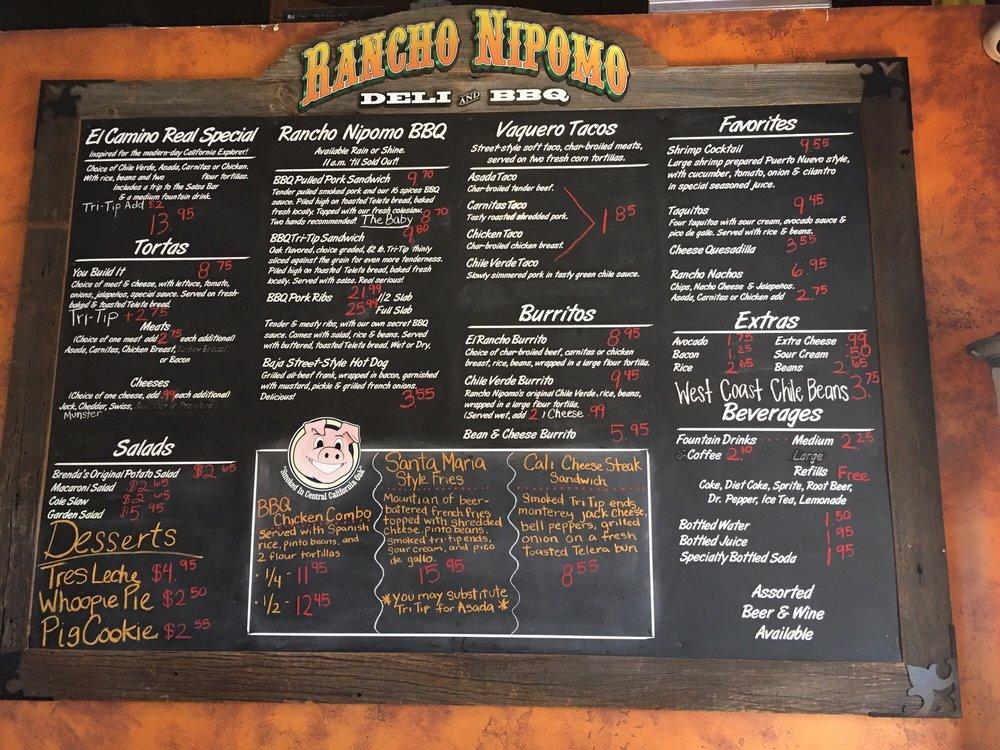 RANCHO NIPOMO
DELI AND BBQ
El Camino Real Special
Inspired for the modern-day California Explorer!
Choice of Chile Verde, Asada, Carnitas or Chicken.
With rice, beans and two flour tortillas.
Includes a trip to the Salsa Bar
& a medium fountain drink.
Tri-Tip Add $2
13.95
Tortas
You Build It 8.75
Choice of meat & cheese, with lettuce, tomato,
onions, jalapeños, special sauce. Served on fresh-
baked & toasted Telete bread.
Tri-Tip +2.75
Meats
(Choice of one meat add 2.75 each additional)
Asada, Carnitas, Chicken Breast, Turkey Breast,
or Bacon
Cheeses
(Choice of one cheese, add .99 each additional)
Jack, Chedder, Swiss,
Munster
Salads
Brenda's Original Potato Salad $2.65
Macaroni Salad $2.65
Cole Slaw $2.65
Garden Salad $5.95
Desserts
Tres Leche $4.95
Whoopie Pie $2.50
Pig Cookie $2.55
Rancho Nipomo BBQ
Available Rain or Shine.
11 a.m. 'til Sold Out!
BBQ Pulled Pork Sandwich 9.70
Tender pulled smoked pork and our 16 spices BBQ
sauce. Piled high on toasted Telete bread, baked
fresh locally. Topped with our fresh coleslaw.
Two hands recommended! The Baby 8.70
BBQ Tri-Tip Sandwich 9.80
Oak flavored, choice graded, 1/2 lb. Tri-Tip thinly
sliced against the grain for even more tenderness.
Piled high on toasted Telete bread, baked fresh
locally. Served with salsa. Real serious!
BBQ Pork Ribs 21.99 1/2 Slab
25.99 Full Slab
Tender & meaty ribs, with our own secret BBQ
sauce. Comes with salad, rice & beans. Served
with buttered, toasted Telete bread. Wet or Dry.
Baja Street-Style Hot Dog
Grilled all-beef frank, wrapped in bacon, garnished
with mustard, pickle & grilled french onions.
Delicious! 3.55
Vaquero Tacos
Street-style soft taco, char-broiled meats,
served on two fresh corn tortillas.
Asada Taco
Char-broiled tender beef.
Carnitas Taco
Tasty roasted shredded pork.
1.85
Chicken Taco
Char-broiled chicken breast.
Chile Verde Taco
Slowly simmered pork in tasty green chile sauce.
Burritos
El Rancho Burrito 8.95
Choice of char-broiled beef, carnitas or chicken
breast, rice, beans, wrapped in a large flour tortilla.
Chile Verde Burrito 9.45
Rancho Nipomo's original Chile Verde, rice, beans,
wrapped in a large flour tortilla.
(Served wet, add 2) Cheese .99
Bean & Cheese Burrito 5.95
Favorites
Shrimp Cocktail 9.55
Large shrimp prepared Puerto Nuevo style,
with cucumber, tomato, onion & cilantro
in special seasoned juice.
Taquitos 9.45
Four taquitos with sour cream, avocado sauce &
pico de gallo. Served with rice & beans.
Cheese Quesadilla 3.55
Rancho Nachos 6.95
Chips, Nacho Cheese & Jalapeños.
Asada, Carnitas or Chicken add 2.75
Extras
Avocado 1.75 Extra Cheese .99
Bacon 1.25 Sour Cream .50
Rice 2.65 Beans 2.65
West Coast Chile Beans 3.75
Beverages
Fountain Drinks Medium 2.25
& Coffee 2.10 Large
Refills Free
Coke, Diet Coke, Sprite, Root Beer,
Dr. Pepper, Ice Tea, Lemonade
Bottled Water 1.50
Bottled Juice 1.95
Specialty Bottled Soda 1.95
Assorted
Beer & Wine
Available
"Smoked in Central California Oak"
BBQ
Chicken Combo
served with Spanish
rice, pinto beans, and
2 flour tortillas.
• 1/4 - 11.95
• 1/2 - 12.45
Santa Maria
Style Fries
Mountian of beer-
battered french fries
topped with shredded
cheese, pinto beans,
smoked tri-tip ends,
sour cream, and pico
de gallo.
15.95
*You may substitute
Tri Tip for Asada*
Cali Cheese Steak
Sandwich
Smoked Tri Tip ends,
monterey jack cheese,
bell peppers, grilled
onion on a fresh
toasted Telera bun
8.55